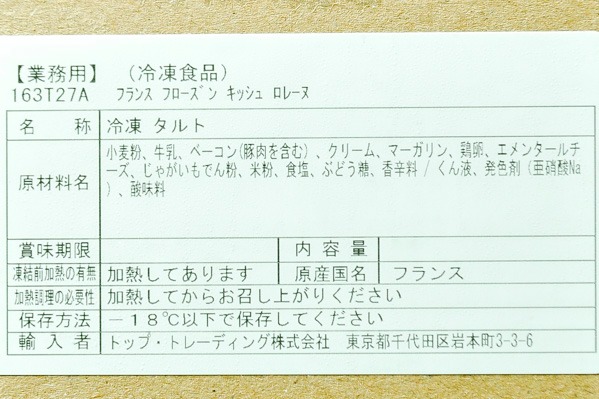 【業務用】 （冷凍食品）
163T27A ﾌﾗﾝｽ ﾌﾛｰｽﾞﾝ ｷｯｼｭ ﾛﾚｰﾇ
名 称 冷凍 タルト
原材料名 小麦粉、牛乳、ベーコン(豚肉を含む)、クリーム、マーガリン、鶏卵、エメンタールチ
ーズ、じゃがいもでん粉、米粉、食塩、ぶどう糖、香辛料 / くん液、発色剤（亜硝酸Na
）、酸味料
賞味期限 内 容 量
凍結前加熱の有無 加熱してあります 原産国名 フランス
加熱調理の必要性 加熱してからお召し上がりください
保存方法 －18℃以下で保存してください
輸 入 者 トップ・トレーディング株式会社 東京都千代田区岩本町3-3-6